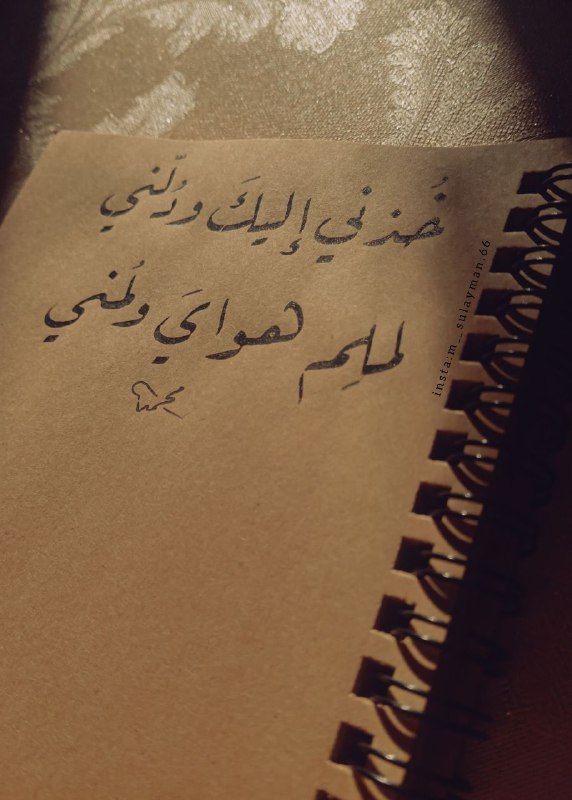 خُذني إليكَ ودُلّني
لملِم هوايَ ولُمني
insta:m__sulayman.66